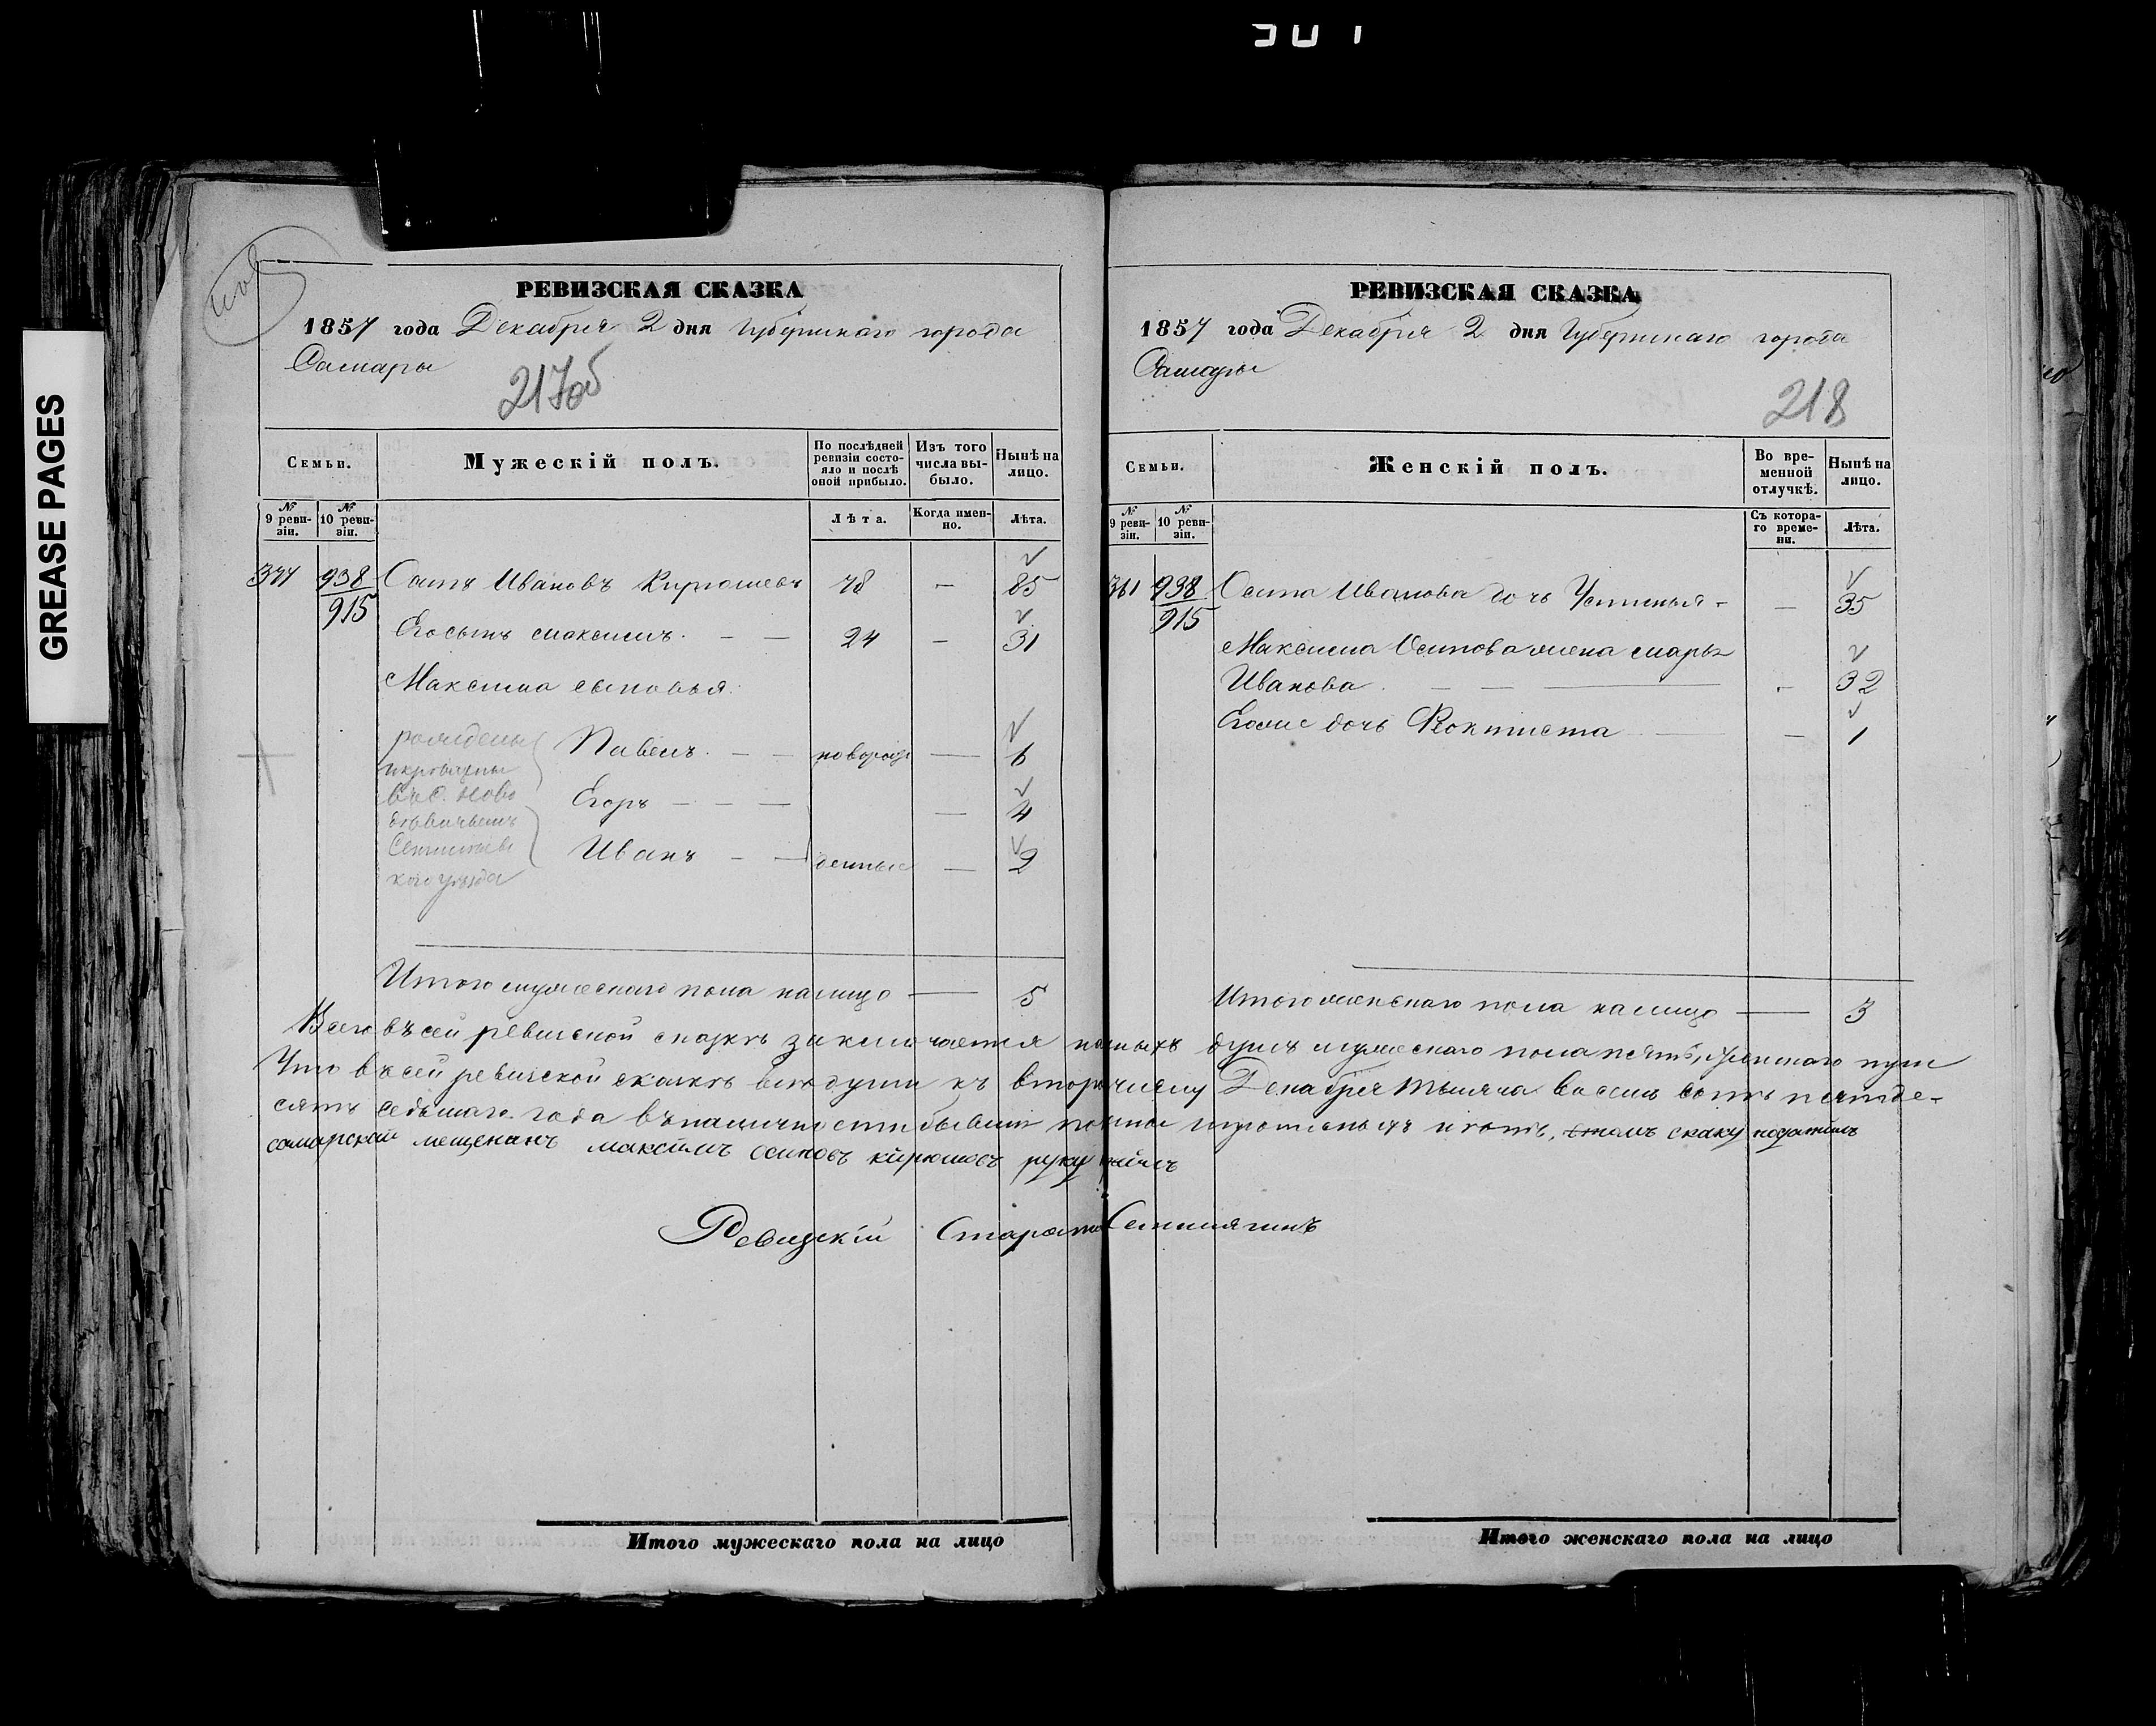 GREASE PAGES
РЕВИЗСКАЯ СКАЗКА
1857 года Декабря 2 дня Губернскаго города
Самары
217об
Семьи.
Мужескій полъ.
По послѣдней ревизіи состояло и послѣ оной прибыло.
Изъ того числа выбыло.
Нынѣ на лицо.
№ 9 ревизіи.
№ 10 ревизіи.
Лѣта.
Когда именно.
Лѣта.
938/915 Осипъ Ивановъ Кирюшевъ 78 — 85
Его сынъ Максимъ. — — 24 — 31
Максима сыновья:
Павелъ. — — новорож — 6
Егоръ — — — — 4
Иванъ — — денные — 2
рождены
въ с. Ново
каго уѣзда
Итого мужескаго пола налицо — 5
РЕВИЗСКАЯ СКАЗКА
1857 года Декабря 2 дня Губернскаго города
Самары
218
Семьи.
Женскій полъ.
Во временной отлучкѣ.
Нынѣ на лицо.
№ 9 ревизіи.
№ 10 ревизіи.
Съ котораго времени.
Лѣта.
361 938/915 Осипа Иванова дочь Устинья — — 35
Максима Осипова жена Марья
Иванова — — — 32
Его же дочь Феоктиста — 1
Итого женскаго пола налицо — 3
Всего въ сей ревизской сказкѣ заключается наличныхъ душъ мужескаго пола пять, женскаго три
Что въ сей ревизской сказкѣ всѣ души къ второму числу Декабря тысяча восемь сотъ пятьде-
сятъ седьмаго года въ наличности бывшіе показаны и
самарскай мещенинъ максимъ осиповъ кирюшовъ руку
Ревизскій Староста
Итого мужескаго пола на лицо
Итого женскаго пола на лицо